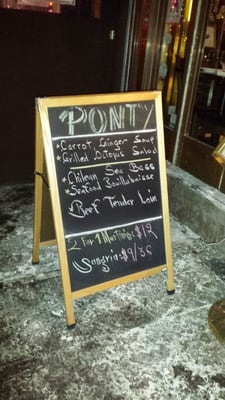 PONTY
*Carrot Ginger Soup
*Grilled Octopus Salad
*Chilean Sea Bass
*Seafood Bouillabaisse
*Beef Tender Loin
2 for 1 Martinis: $12
Sangria: $9/36